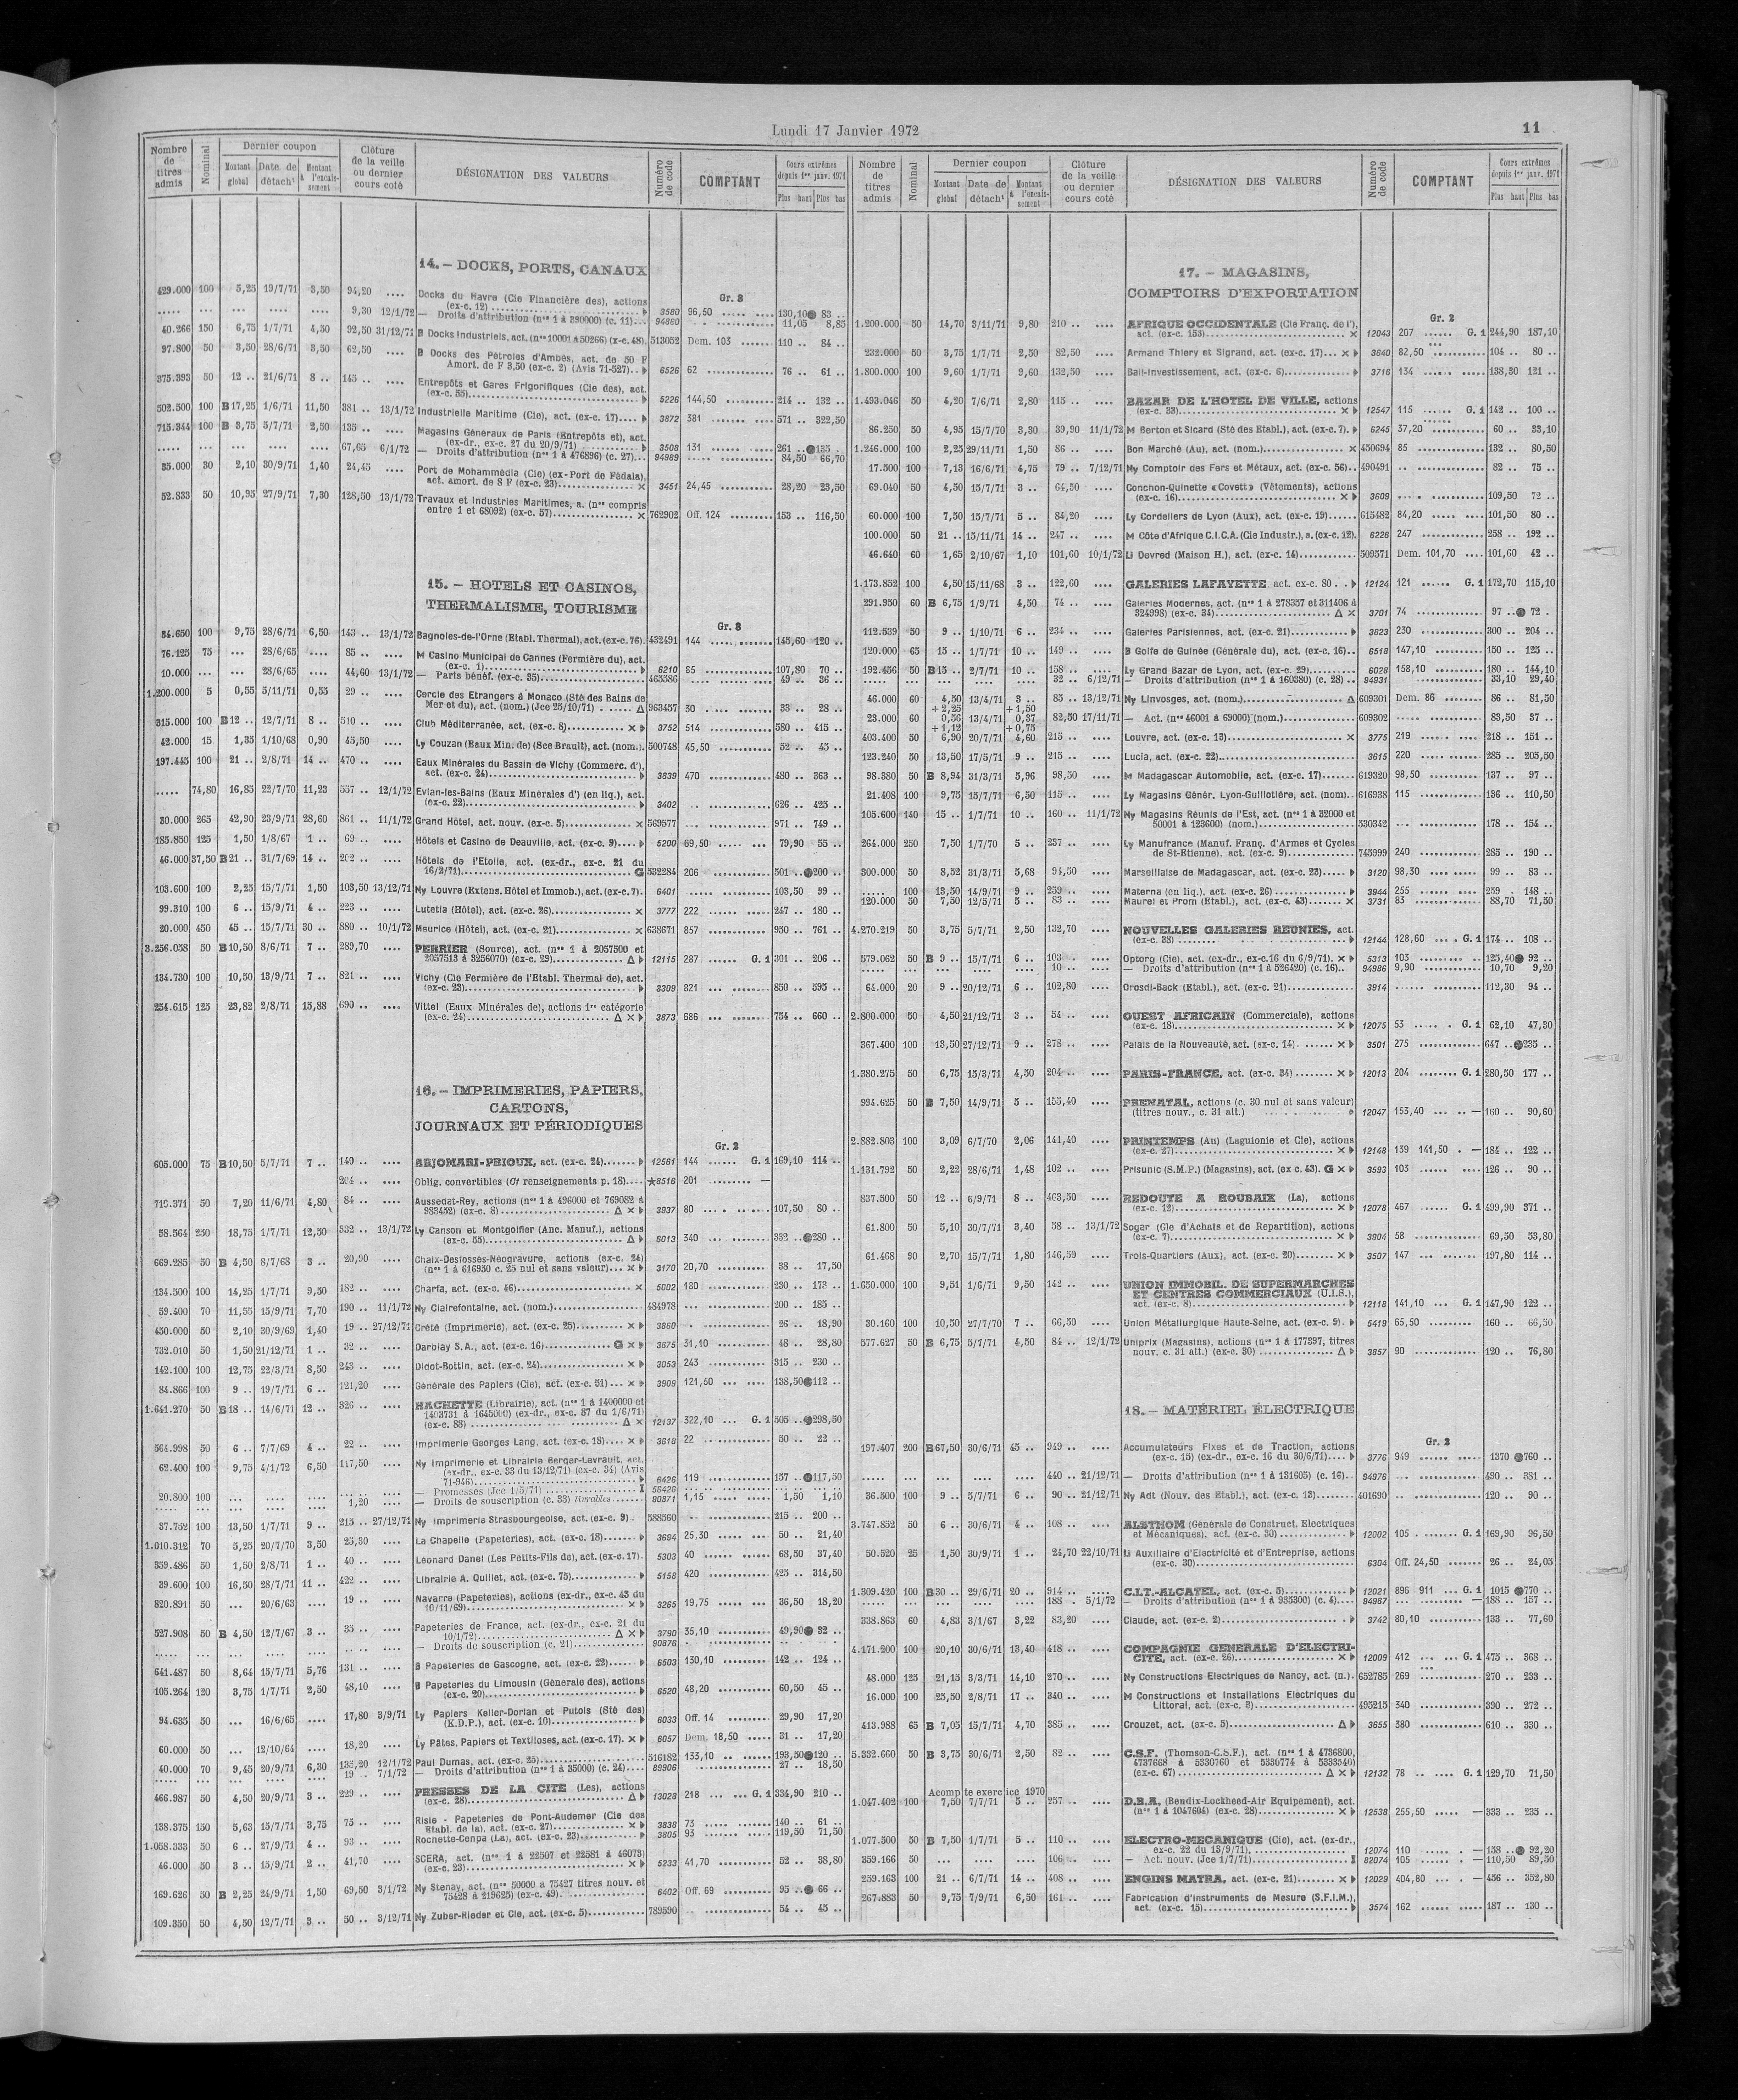 Lundi 17 Janvier 1972
11
Nombre de titres admis | Nominal | Dernier coupon | Montant global | Date de détacht | Montant à l'encaissement | Clôture de la veille ou dernier cours coté | DÉSIGNATION DES VALEURS | Numéro de code | COMPTANT | Cours extrêmes depuis 1er janv. 1971 | Plus haut | Plus bas
14. – DOCKS, PORTS, CANAUX
Gr. 3
429.000 100 5,25 19/7/71 3,50 94,20 .... Docks du Havre (Cie Financière des), actions
(ex-c. 12) 3580 96,50 130,10 83 ..
9,30 12/1/72 — Droits d'attribution (nos 1 à 390000) (c. 11)... 94360 11,05 8,85
40.266 150 6,75 1/7/71 4,50 92,50 31/12/71 B Docks Industriels, act. (nos 10001 à 50266) (x-c. 48). 513052 Dem. 103 110 .. 84 ..
97.800 50 3,50 28/6/71 3,50 62,50 .... B Docks des Pétroles d'Ambès, act. de 50 F
Amort. de F 3,50 (ex-c. 2) (Avis 71-527).. 6526 62 76 .. 61 ..
375.393 50 12 .. 21/6/71 8 .. 145 .. .... Entrepôts et Gares Frigorifiques (Cie des), act.
(ex-c. 55) 5226 144,50 214 .. 132 ..
502.500 100 B 17,25 1/6/71 11,50 381 .. 13/1/72 Industrielle Maritime (Cie), act. (ex-c. 17).... 3872 381 571 .. 322,50
715.344 100 B 3,75 5/7/71 2,50 135 .. .... Magasins Généraux de Paris (Entrepôts et), act.
(ex-dr., ex-c. 27 du 20/9/71) 3508 131 261 .. 135 ..
67,65 6/1/72 — Droits d'attribution (nos 1 à 476896) (c. 27)... 94989 84,50 66,70
35.000 30 2,10 30/9/71 1,40 24,45 .... Port de Mohammédia (Cie) (ex-Port de Fédala),
act. amort. de S F (ex-c. 23) × 3451 24,45 28,20 23,50
52.833 50 10,95 27/9/71 7,30 128,50 13/1/72 Travaux et Industries Maritimes, a. (nos compris
entre 1 et 68092) (ex-c. 57) × 762902 Off. 124 153 .. 116,50
15. – HOTELS ET CASINOS,
THERMALISME, TOURISME
Gr. 3
34.650 100 9,75 28/6/71 6,50 143 .. 13/1/72 Bagnoles-de-l'Orne (Etabl. Thermal), act. (ex-c. 76). 432491 144 145,60 120 ..
76.125 75 ... 28/6/65 .... 85 .. .... M Casino Municipal de Cannes (Fermière du), act.
(ex-c. 1) 6210 85 107,80 70 ..
10.000 ... ... 28/6/65 .... 44,60 13/1/72 — Parts bénéf. (ex-c. 35) 465586 49 .. 36 ..
1.200.000 5 0,55 5/11/71 0,55 29 .. .... Cercle des Etrangers à Monaco (Sté des Bains de
Mer et du), act. (nom.) (Jce 25/10/71) Δ 963457 30 33 .. 28 ..
315.000 100 B 12 .. 12/7/71 8 .. 510 .. .... Club Méditerranée, act. (ex-c. 8) × 3752 514 580 .. 415 ..
42.000 15 1,35 1/10/68 0,90 45,50 .... Ly Couzan (Eaux Min. de) (Sce Brault), act. (nom.). 500748 45,50 52 .. 45 ..
197.445 100 21 .. 2/8/71 14 .. 470 .. .... Eaux Minérales du Bassin de Vichy (Commerc. d'),
act. (ex-c. 24) 3839 470 480 .. 363 ..
..... 74,80 16,85 22/7/70 11,23 557 .. 12/1/72 Evian-les-Bains (Eaux Minérales d') (en liq.), act.
(ex-c. 22) 3402 626 .. 425 ..
30.000 265 42,90 23/9/71 28,60 861 .. 11/1/72 Grand Hôtel, act. nouv. (ex-c. 5) × 569577 971 .. 749 ..
185.850 125 1,50 1/8/67 1 .. 69 .. .... Hôtels et Casino de Deauville, act. (ex-c. 9).... 5200 69,50 79,90 55 ..
46.000 37,50 B 21 .. 31/7/69 14 .. 202 .. .... Hôtels de l'Etoile, act. (ex-dr., ex-c. 21 du
16/2/71) G 532284 206 501 .. 200 ..
103.600 100 2,25 15/7/71 1,50 103,50 13/12/71 Ny Louvre (Extens. Hôtel et Immob.), act. (ex-c. 7). 6401 103,50 99 ..
99.310 100 6 .. 15/9/71 4 .. 223 .. .... Lutetia (Hôtel), act. (ex-c. 26) × 3777 222 247 .. 180 ..
20.000 450 45 .. 15/7/71 30 .. 880 .. 10/1/72 Meurice (Hôtel), act. (ex-c. 21) × 638671 857 950 .. 761 ..
3.256.058 50 B 10,50 8/6/71 7 .. 289,70 PERRIER (Source), act. (nos 1 à 2057500 et
2057513 à 3256070) (ex-c. 29) Δ 12115 287 G. 1 301 .. 206 ..
134.730 100 10,50 13/9/71 7 .. 821 .. .... Vichy (Cie Fermière de l'Etabl. Thermal de), act.
(ex-c. 23) 3309 821 850 .. 595 ..
254.615 125 23,82 2/8/71 15,88 690 .. .... Vittel (Eaux Minérales de), actions 1re catégorie
(ex-c. 24) Δ × 3873 686 754 .. 660 ..
16. – IMPRIMERIES, PAPIERS,
CARTONS,
JOURNAUX ET PÉRIODIQUES
Gr. 2
605.000 75 B 10,50 5/7/71 7 .. 140 .. .... ARJOMARI-PRIOUX, act. (ex-c. 24) 12561 144 G. 1 169,10 114 ..
204 .. .... Oblig. convertibles (Cf renseignements p. 18).... ★8516 201 —
719.371 50 7,20 11/6/71 4,80 84 .. .... Aussedat-Rey, actions (nos 1 à 496000 et 769082 à
983452) (ex-c. 8) Δ × 3937 80 107,50 80 ..
58.564 250 18,75 1/7/71 12,50 332 .. 13/1/72 Ly Canson et Montgolfier (Anc. Manuf.), actions
(ex-c. 55) Δ 6013 340 332 .. 280 ..
669.285 50 B 4,50 8/7/68 3 .. 20,90 .... Chaix-Desfossés-Néogravure, actions (ex-c. 24)
(nos 1 à 616950 c. 25 nul et sans valeur)... × 3170 20,70 38 .. 17,50
134.500 100 14,25 1/7/71 9,50 182 .. .... Charfa, act. (ex-c. 46) × 5002 180 230 .. 173 ..
59.400 70 11,55 15/9/71 7,70 190 .. 11/1/72 Ny Clairefontaine, act. (nom.) 484978 200 .. 185 ..
450.000 50 2,10 30/9/69 1,40 19 .. 27/12/71 Crété (Imprimerie), act. (ex-c. 25) × 3860 26 .. 18,90
732.010 50 1,50 21/12/71 1 .. 32 .. .... Darblay S.A., act. (ex-c. 16) G × 3675 31,10 48 .. 28,80
142.100 100 12,75 22/3/71 8,50 243 .. .... Didot-Bottin, act. (ex-c. 24) × 3053 243 315 .. 230 ..
84.866 100 9 .. 19/7/71 6 .. 121,20 .... Générale des Papiers (Cie), act. (ex-c. 51)... × 3909 121,50 138,50 112 ..
1.641.270 50 B 18 .. 14/6/71 12 .. 326 .. .... HACHETTE (Librairie), act. (nos 1 à 1400000 et
1403731 à 1645000) (ex-dr., ex-c. 87 du 1/6/71)
(ex-c. 88) Δ × 12137 322,10 G. 1 505 .. 298,50
564.998 50 6 .. 7/7/69 4 .. 22 .. .... Imprimerie Georges Lang, act. (ex-c. 18).... × 3618 22 50 .. 22 ..
62.400 100 9,75 4/1/72 6,50 117,50 Ny Imprimerie et Librairie Berger-Levrault, act.
(ex-dr., ex-c. 33 du 13/12/71) (ex-c. 34) (Avis
71-946) 6426 119 157 .. 117,50
20.800 100 — Promesses (Jce 1/5/71) I 56426
1,20 .... — Droits de souscription (c. 33) livrables 90871 1,15 1,50 1,10
37.752 100 13,50 1/7/71 9 .. 215 .. 27/12/71 Ny Imprimerie Strasbourgeoise, act. (ex-c. 9) . 588560 215 .. 200 ..
1.010.312 70 5,25 20/7/70 3,50 25,30 .... La Chapelle (Papeteries), act. (ex-c. 18) 3694 25,30 50 .. 21,40
359.486 50 1,50 2/8/71 1 .. 40 .. .... Léonard Danel (Les Petits-Fils de), act. (ex-c. 17). 5303 40 68,50 37,40
39.600 100 16,50 28/7/71 11 .. 422 .. .... Librairie A. Quillet, act. (ex-c. 75) 5158 420 425 .. 314,50
820.891 50 ... 20/6/63 .... 19 .. .... Navarre (Papeteries), actions (ex-dr., ex-c. 43 du
10/11/69) × 3265 19,75 36,50 18,20
527.908 50 B 4,50 12/7/67 3 .. 35 .. .... Papeteries de France, act. (ex-dr., ex-c. 21 du
10/1/72) Δ × 3790 35,10 49,90 32 ..
— Droits de souscription (c. 21) 90876
641.487 50 8,64 15/7/71 5,76 131 .. .... B Papeteries de Gascogne, act. (ex-c. 22) 6503 130,10 142 .. 124 ..
105.264 120 3,75 1/7/71 2,50 48,10 .... B Papeteries du Limousin (Générale des), actions
(ex-c. 20) 6520 48,20 60,50 45 ..
94.635 50 ... 16/6/65 .... 17,80 3/9/71 Ly Papiers Keller-Dorian et Putois (Sté des)
(K.D.P.), act. (ex-c. 10) 6033 Off. 14 29,90 17,20
60.000 50 ... 12/10/64 .... 18,20 .... Ly Pâtes, Papiers et Textiloses, act. (ex-c. 17). × 6057 Dem. 18,50 31 .. 17,20
40.000 70 9,45 20/9/71 6,30 135,20 12/1/72 Paul Dumas, act. (ex-c. 25) 516182 133,10 193,50 120 ..
19 .. 7/1/72 — Droits d'attribution (nos 1 à 35000) (c. 24).... 89906 27 .. 18,50
466.987 50 4,50 20/9/71 3 .. 229 .. .... PRESSES DE LA CITE (Les), actions
(ex-c. 28) Δ 13028 218 G. 1 334,90 210 ..
138.375 150 5,63 15/7/71 3,75 75 .. .... Risle - Papeteries de Pont-Audemer (Cie des
Etabl. de la), act. (ex-c. 27) × 3838 75 140 .. 61 ..
1.058.333 50 6 .. 27/9/71 4 .. 93 .. .... Rochette-Cenpa (La), act. (ex-c. 23) 3805 93 119,50 71,50
46.000 50 3 .. 15/9/71 2 .. 41,70 .... SCERA, act. (nos 1 à 22507 et 22581 à 46073)
(ex-c. 23) × 5233 41,70 52 .. 38,80
169.626 50 B 2,25 24/9/71 1,50 69,50 3/1/72 Ny Stenay, act. (nos 50000 à 75427 titres nouv. et
75428 à 219625) (ex-c. 49) 6402 Off. 69 95 .. 66 ..
109.350 50 4,50 12/7/71 3 .. 50 .. 3/12/71 Ny Zuber-Rieder et Cie, act. (ex-c. 5) 789590 54 .. 45 ..
Nombre de titres admis | Nominal | Dernier coupon | Montant global | Date de détacht | Montant à l'encaissement | Clôture de la veille ou dernier cours coté | DÉSIGNATION DES VALEURS | Numéro de code | COMPTANT | Cours extrêmes depuis 1er janv. 1971 | Plus haut | Plus bas
17. – MAGASINS,
COMPTOIRS D'EXPORTATION
Gr. 2
1.200.000 50 14,70 3/11/71 9,80 210 .. .... AFRIQUE OCCIDENTALE (Cie Franç. de l'),
act. (ex-c. 153) × 12043 207 G. 1 244,90 187,10
232.000 50 3,75 1/7/71 2,50 82,50 .... Armand Thiery et Sigrand, act. (ex-c. 17)... × 3640 82,50 104 .. 80 ..
1.800.000 100 9,60 1/7/71 9,60 132,50 .... Bail-Investissement, act. (ex-c. 6) 3716 134 138,30 121 ..
1.493.046 50 4,20 7/6/71 2,80 115 .. .... BAZAR DE L'HOTEL DE VILLE, actions
(ex-c. 33) × 12547 115 G. 1 142 .. 100 ..
86.250 50 4,95 15/7/70 3,30 39,90 11/1/72 M Berton et Sicard (Sté des Etabl.), act. (ex-c. 7). 6245 37,20 60 .. 33,10
1.246.000 100 2,25 29/11/71 1,50 86 .. .... Bon Marché (Au), act. (nom.) × 450694 85 132 .. 80,50
17.500 100 7,13 16/6/71 4,75 79 .. 7/12/71 Ny Comptoir des Fers et Métaux, act. (ex-c. 56).. 490491 82 .. 75 ..
69.040 50 4,50 15/7/71 3 .. 64,50 .... Conchon-Quinette «Covett» (Vêtements), actions
(ex-c. 16) × 3609 109,50 72 ..
60.000 100 7,50 15/7/71 5 .. 84,20 .... Ly Cordeliers de Lyon (Aux), act. (ex-c. 19) 615482 84,20 101,50 80 ..
100.000 50 21 .. 15/11/71 14 .. 247 .. .... M Côte d'Afrique C.I.C.A. (Cie Industr.), a. (ex-c. 12). 6226 247 258 .. 192 ..
46.640 60 1,65 2/10/67 1,10 101,60 10/1/72 Li Devred (Maison H.), act. (ex-c. 14) 509571 Dem. 101,70 101,60 42 ..
1.173.852 100 4,50 15/11/68 3 .. 122,60 .... GALERIES LAFAYETTE act. ex-c. 80 12124 121 G. 1 172,70 115,10
291.950 60 B 6,75 1/9/71 4,50 74 .. .... Galeries Modernes, act. (nos 1 à 278357 et 311406 à
324998) (ex-c. 34) Δ × 3701 74 97 .. 72 .
112.539 50 9 .. 1/10/71 6 .. 234 .. .... Galeries Parisiennes, act. (ex-c. 21) 3623 230 300 .. 204 ..
120.000 65 15 .. 1/7/71 10 .. 149 .. .... B Golfe de Guinée (Générale du), act. (ex-c. 16).. 6518 147,10 150 .. 125 ..
192.456 50 B 15 .. 2/7/71 10 .. 158 .. .... Ly Grand Bazar de Lyon, act. (ex-c. 29) 6028 158,10 180 .. 144,10
32 .. 6/12/71 — Droits d'attribution (nos 1 à 160380) (c. 28) .. 94931 33,10 29,40
46.000 60 4,50 + 2,25 13/4/71 3 .. + 1,50 85 .. 13/12/71 Ny Linvosges, act. (nom.) Δ 609301 Dem. 86 86 .. 81,50
23.000 60 0,56 + 1,12 13/4/71 0,37 + 0,75 82,50 17/11/71 — Act. (nos 46001 à 69000) (nom.) 609302 83,50 37 ..
403.400 50 6,90 20/7/71 4,60 215 .. .... Louvre, act. (ex-c. 13) × 3775 219 218 .. 151 ..
123.240 50 13,50 17/5/71 9 .. 215 .. .... Lucia, act. (ex-c. 22) 3615 220 285 .. 205,50
98.380 50 B 8,94 31/3/71 5,96 98,50 .... M Madagascar Automobile, act. (ex-c. 17) 619320 98,50 137 .. 97 ..
21.408 100 9,75 15/7/71 6,50 115 .. .... Ly Magasins Génér. Lyon-Guillotière, act. (nom).. 616938 115 136 .. 110,50
105.600 140 15 .. 1/7/71 10 .. 160 .. 11/1/72 Ny Magasins Réunis de l'Est, act. (nos 1 à 32000 et
50001 à 123600) (nom.) 530342 178 .. 154 ..
264.000 250 7,50 1/7/70 5 .. 237 .. .... Ly Manufrance (Manuf. Franç. d'Armes et Cycles
de St-Etienne), act. (ex-c. 9) 745999 240 285 .. 190 ..
300.000 50 8,52 31/3/71 5,68 94,50 .... Marseillaise de Madagascar, act. (ex-c. 23) 3120 98,30 99 .. 83 ..
..... 100 13,50 14/9/71 9 .. 259 .. .... Materna (en liq.), act. (ex-c. 26) 3944 255 259 . 148 ..
120.000 50 7,50 12/5/71 5 .. 83 .. .... Maurel et Prom (Etabl.), act. (ex-c. 43) × 3731 83 88,70 71,50
4.270.219 50 3,75 5/7/71 2,50 132,70 NOUVELLES GALERIES REUNIES, act.
(ex-c. 38) 12144 128,60 G. 1 174 .. 108 ..
579.062 50 B 9 .. 15/7/71 6 .. 103 .. .... Optorg (Cie), act. (ex-dr., ex-c.16 du 6/9/71). × 5313 103 125,40 92 ..
10 .. .... — Droits d'attribution (nos 1 à 526420) (c. 16).. 94986 9,90 10,70 9,20
64.000 20 9 .. 20/12/71 6 .. 102,80 .... Orosdi-Back (Etabl.), act. (ex-c. 21) 3914 112,30 94 ..
2.800.000 50 4,50 21/12/71 3 .. 54 .. .... OUEST AFRICAIN (Commerciale), actions
(ex-c. 18) × 12075 53 G. 1 62,10 47,30
367.400 100 13,50 27/12/71 9 .. 278 .. .... Palais de la Nouveauté, act. (ex-c. 14) × 3501 275 647 .. 235 ..
1.380.275 50 6,75 15/3/71 4,50 204 .. .... PARIS-FRANCE, act. (ex-c. 34) × 12013 204 G. 1 280,50 177 ..
994.625 50 B 7,50 14/9/71 5 .. 155,40 .... PRENATAL, actions (c. 30 nul et sans valeur)
(titres nouv., c. 31 att.) 12047 153,40 — 160 .. 90,60
2.882.803 100 3,09 6/7/70 2,06 141,40 .... PRINTEMPS (Au) (Laguionie et Cie), actions
(ex-c. 27) × 12148 139 141,50 — 184 .. 122 ..
1.131.792 50 2,22 28/6/71 1,48 102 .. .... Prisunic (S.M.P.) (Magasins), act. (ex c. 43). G × 3593 103 126 .. 90 ..
837.500 50 12 .. 6/9/71 8 .. 463,50 .... REDOUTE A ROUBAIX (La), actions
(ex-c. 12) × 12078 467 G. 1 499,90 371 ..
61.800 50 5,10 30/7/71 3,40 58 .. 13/1/72 Sogar (Gie d'Achats et de Repartition), actions
(ex-c. 7) × 3904 58 69,50 53,80
61.468 90 2,70 15/7/71 1,80 146,50 .... Trois-Quartiers (Aux), act. (ex-c. 20) × 3507 147 197,80 114 ..
1.650.000 100 9,51 1/6/71 9,50 142 .. .... UNION IMMOBIL. DE SUPERMARCHES
ET CENTRES COMMERCIAUX (U.I.S.),
act. (ex-c. 8) 12118 141,10 G. 1 147,90 122 ..
30.160 100 10,50 27/7/70 7 .. 66,50 .... Union Métallurgique Haute-Seine, act. (ex-c. 9). 5419 65,50 160 .. 66,50
577.627 50 B 6,75 5/7/71 4,50 84 .. 12/1/72 Uniprix (Magasins), actions (nos 1 à 177397, titres
nouv. c. 31 att.) (ex-c. 30) Δ 3857 90 120 .. 76,80
18. – MATÉRIEL ÉLECTRIQUE
Gr. 2
197.407 200 B 67,50 30/6/71 45 .. 949 .. .... Accumulateurs Fixes et de Traction, actions
(ex-c. 15) (ex-dr., ex-c. 16 du 30/6/71) 3776 949 1370 760 ..
440 .. 21/12/71 — Droits d'attribution (nos 1 à 131605) (c. 16).. 94976 490 .. 381 ..
36.500 100 9 .. 5/7/71 6 .. 90 .. 21/12/71 Ny Adt (Nouv. des Etabl.), act. (ex-c. 13) 401690 120 .. 90 ..
3.747.852 50 6 .. 30/6/71 4 .. 108 .. .... ALSTHOM (Générale de Construct. Electriques
et Mécaniques), act. (ex-c. 30) 12002 105 G. 1 169,90 96,50
50.520 25 1,50 30/9/71 1 .. 24,70 22/10/71 Li Auxiliaire d'Electricité et d'Entreprise, actions
(ex-c. 30) 6304 Off. 24,50 26 .. 24,05
1.309.420 100 B 30 .. 29/6/71 20 .. 914 .. .... C.I.T.-ALCATEL, act. (ex-c. 5) 12021 896 911 G. 1 1015 770 ..
188 . 5/1/72 — Droits d'attribution (nos 1 à 935300) (c. 4).... 94967 — 188 .. 157 ..
338.863 60 4,83 3/1/67 3,22 83,20 .... Claude, act. (ex-c. 2) 3742 80,10 133 .. 77,60
4.171.200 100 20,10 30/6/71 13,40 418 .. .... COMPAGNIE GENERALE D'ELECTRI-
CITE, act. (ex-c. 26) × 12009 412 G. 1 475 .. 368 ..
48.000 125 21,15 3/3/71 14,10 270 .. .... Ny Constructions Electriques de Nancy, act. (n.). 652785 269 270 .. 233 ..
16.000 100 25,50 2/8/71 17 .. 340 .. .... M Constructions et Installations Electriques du
Littoral, act. (ex-c. 3) 495215 340 390 .. 272 ..
413.988 65 B 7,05 15/7/71 4,70 385 .. .... Crouzet, act. (ex-c. 5) Δ 3655 380 610 .. 330 ..
5.332.660 50 B 3,75 30/6/71 2,50 82 .. .... C.S.F. (Thomson-C.S.F.), act. (nos 1 à 4736800,
4737668 à 5330760 et 5330774 à 5333540)
(ex-c. 67) Δ × 12132 78 G. 1 129,70 71,50
Acompte exercice 1970
1.047.402 100 7,50 7/7/71 5 .. 257 .. .... D.B.A. (Bendix-Lockheed-Air Equipement), act.
(nos 1 à 1047604) (ex-c. 28) × 12538 255,50 — 333 .. 235 ..
1.077.500 50 B 7,50 1/7/71 5 .. 110 .. .... ELECTRO-MECANIQUE (Cie), act. (ex-dr.,
ex-c. 22 du 13/9/71) 12074 110 — 158 .. 92,20
359.166 50 ... .... .... 106 .. .... — Act. nouv. (Jce 1/7/71) I 82074 105 — 110,50 89,50
259.163 100 21 .. 6/7/71 14 .. 408 .. .... ENGINS MATRA, act. (ex-c. 21) × 12029 404,80 — 456 .. 352,80
267.883 50 9,75 7/9/71 6,50 161 .. .... Fabrication d'Instruments de Mesure (S.F.I.M.),
act. (ex-c. 15) 3574 162 187 .. 130 ..